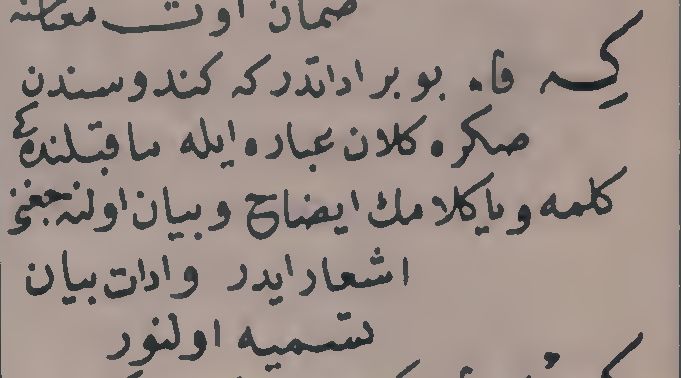 ضمان اوت معناسنه
كه فا. بو بر اداتدر كه كندوسندن
صكره كلان عباره ايله ماقبلنده كى
كلمه ويا كلامك ايضاح وبيان اولنه جغنى
اشعار ايدر وادات بيان
تسميه اولنور